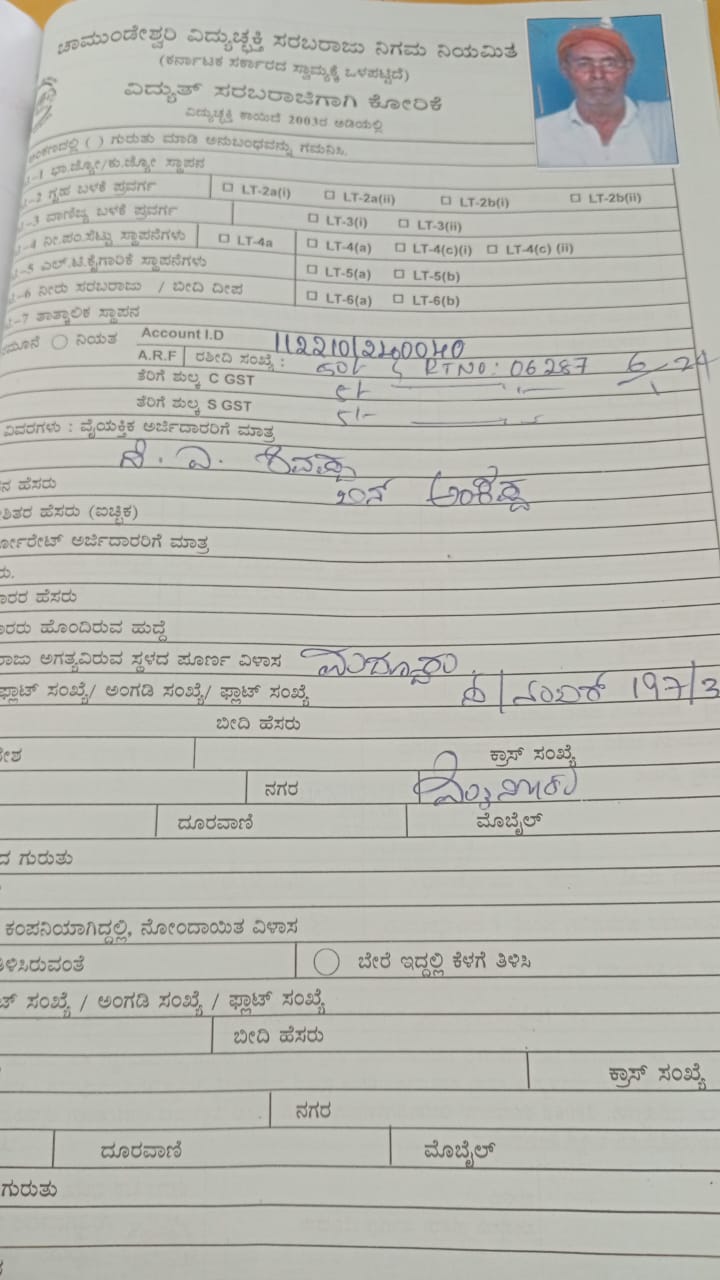 ಚಾಮುಂಡೇಶ್ವರಿ ವಿದ್ಯುಚ್ಛಕ್ತಿ ಸರಬರಾಜು ನಿಗಮ ನಿಯಮಿತ
(ಕರ್ನಾಟಕ ಸರ್ಕಾರದ ಸ್ವಾಮ್ಯಕ್ಕೆ ಒಳಪಟ್ಟಿದೆ)
ವಿದ್ಯುತ್ ಸರಬರಾಜಿಗಾಗಿ ಕೋರಿಕೆ
ವಿದ್ಯುಚ್ಛಕ್ತಿ ಕಾಯಿದೆ 2003ರ ಅಡಿಯಲ್ಲಿ
( ) ಗುರುತು ಮಾಡಿ ಅನುಬಂಧವನ್ನು ಗಮನಿಸಿ.
-1 ಭಾ.ಜ್ಯೋ/ಕು.ಜ್ಯೋ ಸ್ಥಾಪನ
-2 ಗೃಹ ಬಳಕೆ ಪ್ರವರ್ಗ LT-2a(i) LT-2a(ii) LT-2b(i) LT-2b(ii)
-3 ವಾಣಿಜ್ಯ ಬಳಕೆ ಪ್ರವರ್ಗ LT-3(i) LT-3(ii)
-4 ನೀ.ಪಂ.ಸೆಟ್ಟು ಸ್ಥಾಪನೆಗಳು LT-4a LT-4(a) LT-4(c)(i) LT-4(c) (ii)
-5 ಎಲ್.ಟಿ.ಕೈಗಾರಿಕೆ ಸ್ಥಾಪನೆಗಳು LT-5(a) LT-5(b)
-6 ನೀರು ಸರಬರಾಜು / ಬೀದಿ ದೀಪ LT-6(a) LT-6(b)
-7 ತಾತ್ಕಾಲಿಕ ಸ್ಥಾಪನ
ನಿಯತ Account I.D 112210/2400040
A.R.F ರಶೀದಿ ಸಂಖ್ಯೆ : 50/- RTNO: 06287 6/24
ತೆರಿಗೆ ಶುಲ್ಕ C GST 5/-
ತೆರಿಗೆ ಶುಲ್ಕ S GST 5/-
ವಿವರಗಳು : ವೈಯಕ್ತಿಕ ಅರ್ಜಿದಾರರಿಗೆ ಮಾತ್ರ
ಹೆಸರು
ಹೆಸರು (ಐಚ್ಛಿಕ)
ಅರ್ಜಿದಾರರಿಗೆ ಮಾತ್ರ
ಹೆಸರು
ಹೊಂದಿರುವ ಹುದ್ದೆ
ಅಗತ್ಯವಿರುವ ಸ್ಥಳದ ಪೂರ್ಣ ವಿಳಾಸ
ಫ್ಲಾಟ್ ಸಂಖ್ಯೆ/ ಅಂಗಡಿ ಸಂಖ್ಯೆ/ ಫ್ಲಾಟ್ ಸಂಖ್ಯೆ 197/3
ಬೀದಿ ಹೆಸರು
ಕ್ರಾಸ್ ಸಂಖ್ಯೆ
ನಗರ
ದೂರವಾಣಿ ಮೊಬೈಲ್
ಗುರುತು
ಕಂಪನಿಯಾಗಿದ್ದಲ್ಲಿ, ನೋಂದಾಯಿತ ವಿಳಾಸ
ಬೇರೆ ಇದ್ದಲ್ಲಿ ಕೆಳಗೆ ತಿಳಿಸಿ
ಸಂಖ್ಯೆ / ಅಂಗಡಿ ಸಂಖ್ಯೆ / ಫ್ಲಾಟ್ ಸಂಖ್ಯೆ
ಬೀದಿ ಹೆಸರು
ಕ್ರಾಸ್ ಸಂಖ್ಯೆ
ನಗರ
ದೂರವಾಣಿ ಮೊಬೈಲ್
ಗುರುತು